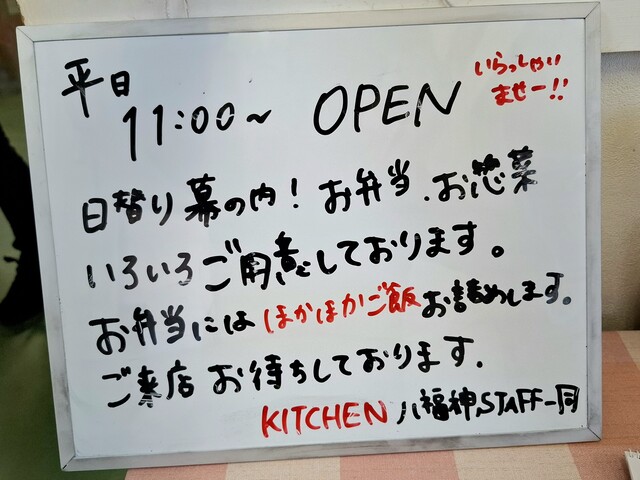 平日
11:00~ OPEN
いらっしゃい
ませー!!
日替り幕の内！お弁当、お惣菜
いろいろご用意しております。
お弁当にはほかほかご飯お詰めします。
ご来店お待ちしております。
KITCHEN 八福神STAFF一同